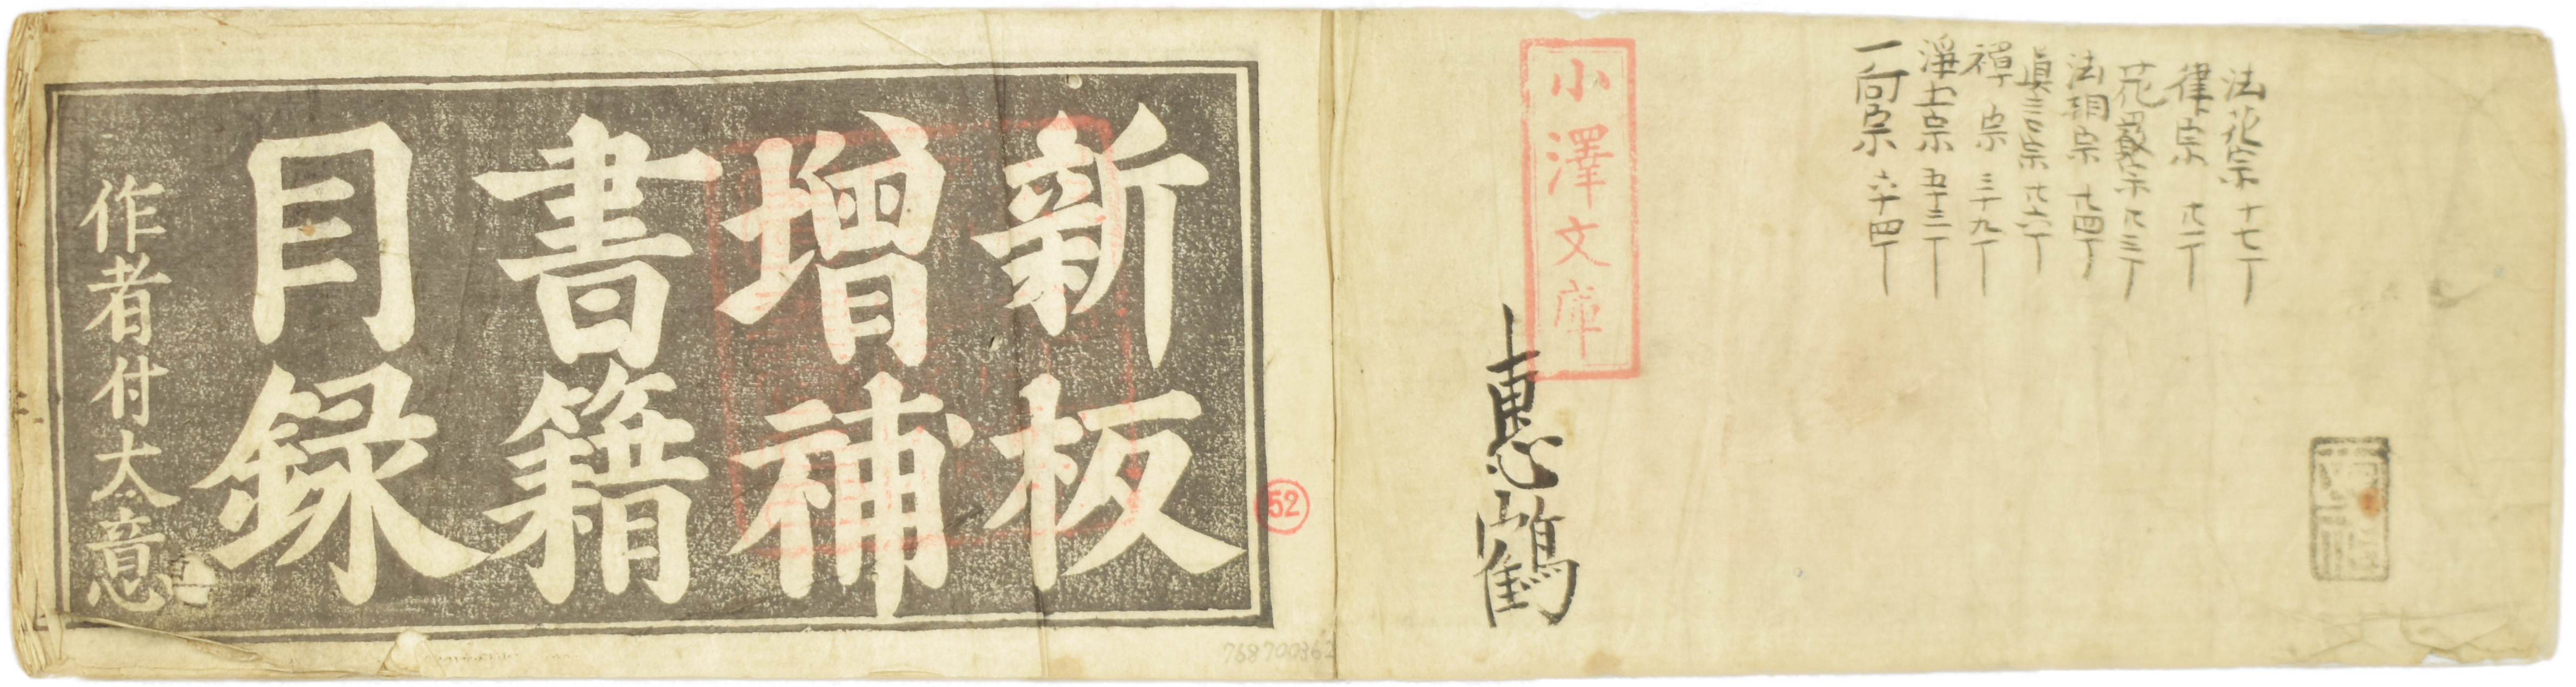 法花宗 十七丁
律宗 廿一丁
花嚴宗 廿三丁
法相宗 廿四丁
眞言宗 廿六丁
禪宗 三十九丁
淨土宗 五十三丁
一向宗 六十四丁
小澤文庫
惠鶴
新板
增補
書籍
目録
作者付大意
52
768700362